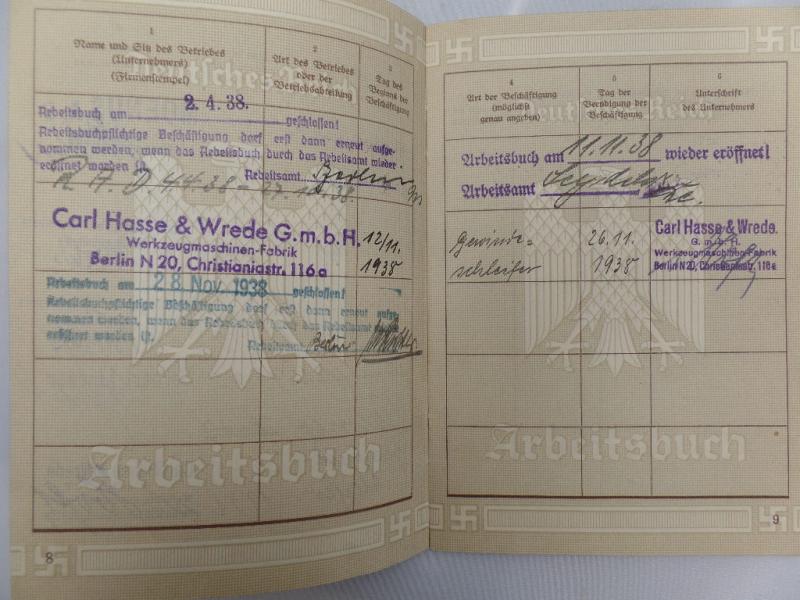 1
Name und Sitz des Betriebes
(Unternehmers)
(Firmenstempel)
2
Art des Betriebes
oder der
Betriebsabteilung
3
Tag des
Beginns der
Beschäftigung
2.4.38.
Arbeitsbuch am geschlossen!
Arbeitsbuchpflichtige Beschäftigung darf erst dann erneut aufge-
nommen werden, wenn das Arbeitsbuch durch das Arbeitsamt wieder-
eröffnet worden ist. Arbeitsamt Berlin
R. A. D 4.4.38 - 27.10.38.
Carl Hasse & Wrede G.m.b.H.
Werkzeugmaschinen-Fabrik
Berlin N 20, Christianiastr. 116a
12/11.
1938
Arbeitsbuch am 28. Nov. 1938 geschlossen!
Arbeitsbuchpflichtige Beschäftigung darf erst dann erneut aufge-
nommen werden, wenn das Arbeitsbuch durch das Arbeitsamt wieder-
eröffnet worden ist.
Arbeitsamt Berlin
Arbeitsbuch
8
4
Art der Beschäftigung
(möglichst
genau angeben)
5
Tag der
Beendigung der
Beschäftigung
6
Unterschrift
des Unternehmers
Deutsches Reich
Arbeitsbuch am 11.11.38 wieder eröffnet!
Arbeitsamt
Gewinde=
schleifer
26.11.
1938
Carl Hasse & Wrede.
G.m.b.H.
Werkzeugmaschinen-Fabrik
Berlin N 20, Christianiastr. 116a
Arbeitsbuch
9